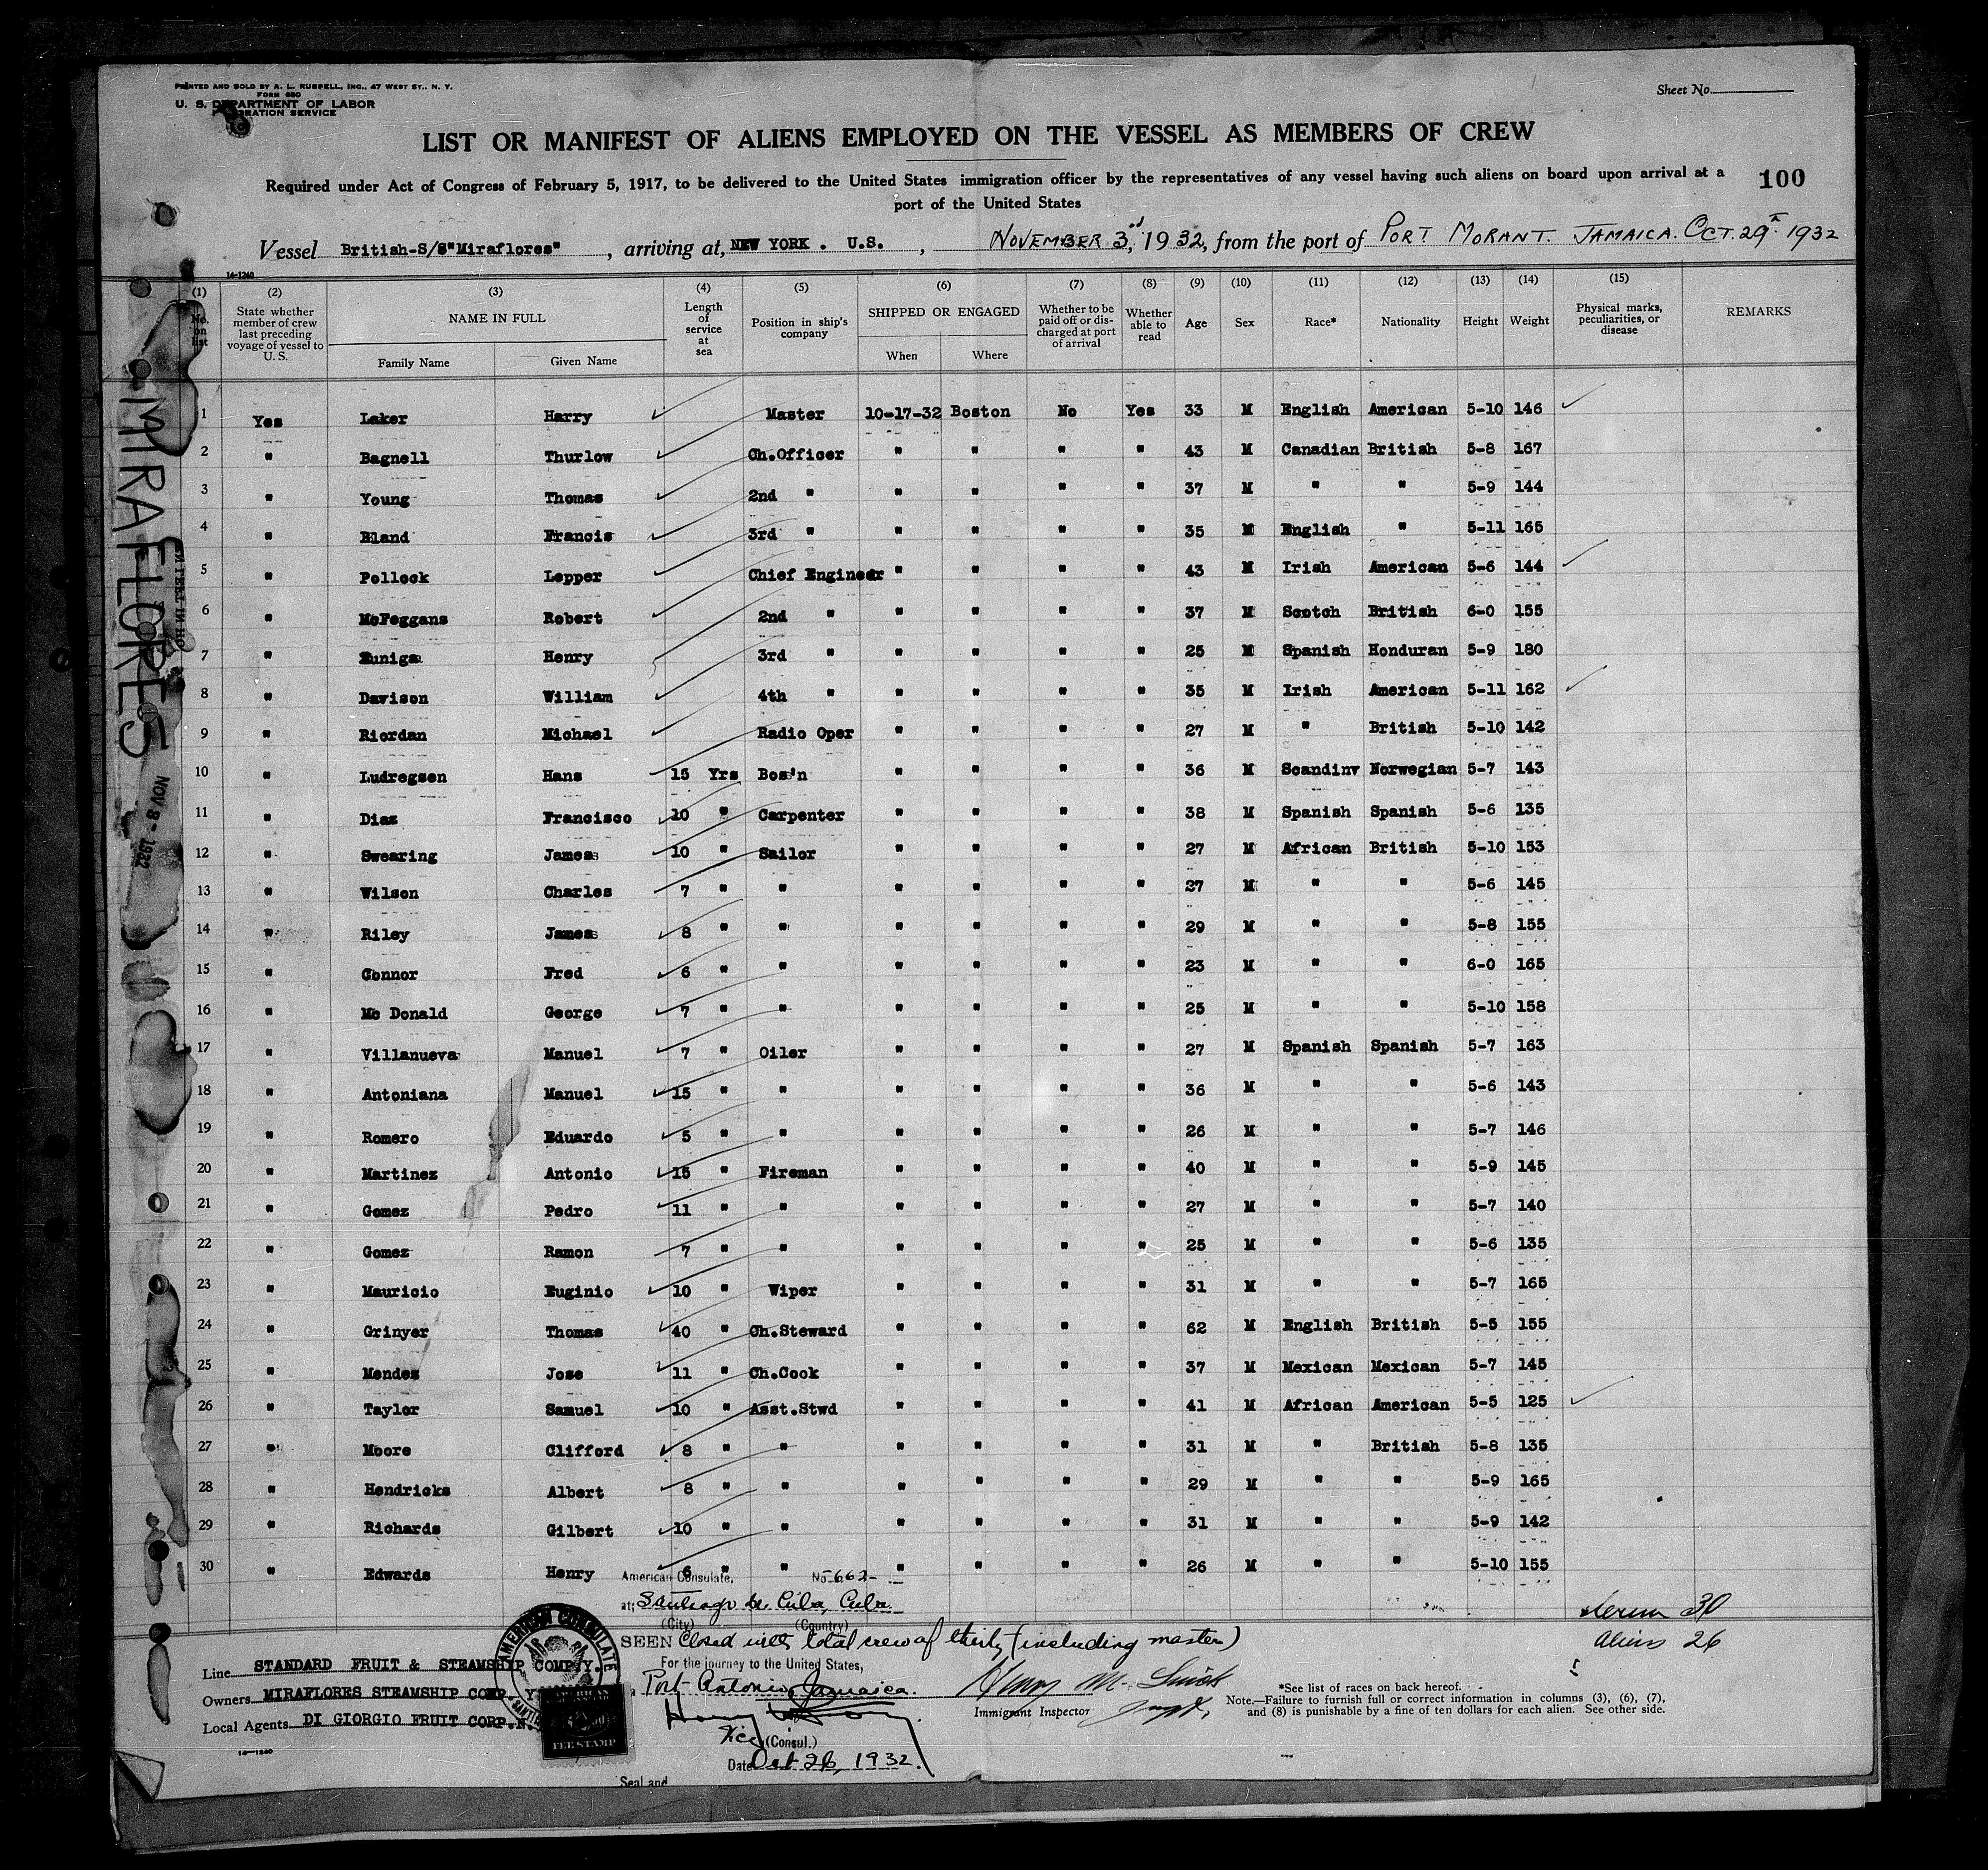 PRINTED AND SOLD BY A. L. RUSSELL, INC., 47 WEST ST., N. Y.
FORM 680
U. S. DEPARTMENT OF LABOR
IMMIGRATION SERVICE
Sheet No.
LIST OR MANIFEST OF ALIENS EMPLOYED ON THE VESSEL AS MEMBERS OF CREW
Required under Act of Congress of February 5, 1917, to be delivered to the United States immigration officer by the representatives of any vessel having such aliens on board upon arrival at a
port of the United States
100
Vessel British-S/S"Miraflores", arriving at, NEW YORK. U.S., NOVEMBER 3rd, 1932, from the port of PORT MORANT. JAMAICA. OCT. 29th 1932
14-1240
(1) (2) (3) (4) (5) (6) (7) (8) (9) (10) (11) (12) (13) (14) (15)
No. on list State whether member of crew last preceding voyage of vessel to U. S. NAME IN FULL Family Name Given Name Length of service at sea Position in ship's company SHIPPED OR ENGAGED When Where Whether to be paid off or discharged at port of arrival Whether able to read Age Sex Race* Nationality Height Weight Physical marks, peculiarities, or disease REMARKS
1 Yes Laker Harry Master 10-17-32 Boston No Yes 33 M English American 5-10 146
2 " Bagnell Thurlow Ch.Officer " " " " 43 M Canadian British 5-8 167
3 " Young Thomas 2nd " " " " " 37 M " " 5-9 144
4 " Bland Francis 3rd " " " " " 35 M English " 5-11 165
5 " Pollock Lepper Chief Engineer " " " " 43 M Irish American 5-6 144
6 " McFeggans Robert 2nd " " " " " 37 M Scotch British 6-0 155
7 " Zuniga Henry 3rd " " " " " 25 M Spanish Honduran 5-9 180
8 " Davison William 4th " " " " " 35 M Irish American 5-11 162
9 " Riordan Michael Radio Oper " " " " 27 M " British 5-10 142
10 " Ludregsen Hans 15 Yrs Bos'n " " " " 36 M Scandinv Norwegian 5-7 143
11 " Diaz Francisco 10 " Carpenter " " " " 38 M Spanish Spanish 5-6 135
12 " Swearing James 10 " Sailor " " " " 27 M African British 5-10 153
13 " Wilson Charles 7 " " " " " " 27 M " " 5-6 145
14 " Riley James 8 " " " " " " 29 M " " 5-8 155
15 " Connor Fred 6 " " " " " " 23 M " " 6-0 165
16 " Mc Donald George 7 " " " " " " 25 M " " 5-10 158
17 " Villanueva Manuel 7 " Oiler " " " " 27 M Spanish Spanish 5-7 163
18 " Antoniana Manuel 15 " " " " " " 36 M " " 5-6 143
19 " Romero Eduardo 5 " " " " " " 26 M " " 5-7 146
20 " Martinez Antonio 15 " Fireman " " " " 40 M " " 5-9 145
21 " Gomez Pedro 11 " " " " " " 27 M " " 5-7 140
22 " Gomez Ramon 7 " " " " " " 25 M " " 5-6 135
23 " Mauricio Euginio 10 " Wiper " " " " 31 M " " 5-7 165
24 " Grinyer Thomas 40 " Ch.Steward " " " " 62 M English British 5-5 155
25 " Mendez Jose 11 " Ch.Cook " " " " 37 M Mexican Mexican 5-7 145
26 " Taylor Samuel 10 " Asst.Stwd " " " " 41 M African American 5-5 125
27 " Moore Clifford 8 " " " " " " 31 M " British 5-8 135
28 " Hendricks Albert 8 " " " " " " 29 M " " 5-9 165
29 " Richards Gilbert 10 " " " " " " 31 M " " 5-9 142
30 " Edwards Henry 6 " " " " " " 26 M " " 5-10 155
MIRAFLORES
NOV 3 - 1932
American Consulate, No 662
at; Santiago de Cuba, Cuba
(City) (Country)
SEEN Closed with total crew of thirty (including master)
30
Aliens 26
For the journey to the United States,
Port Antonio, Jamaica.
Line STANDARD FRUIT & STEAMSHIP COMP'Y.
Owners MIRAFLORES STEAMSHIP COMP.
Local Agents DI GIORGIO FRUIT CORP.
AMERICAN CONSULATE
FEE STAMP
Vice (Consul.)
Date Oct 26, 1932.
Seal and
Immigrant Inspector
*See list of races on back hereof.
Note.—Failure to furnish full or correct information in columns (3), (6), (7),
and (8) is punishable by a fine of ten dollars for each alien. See other side.
14-1240